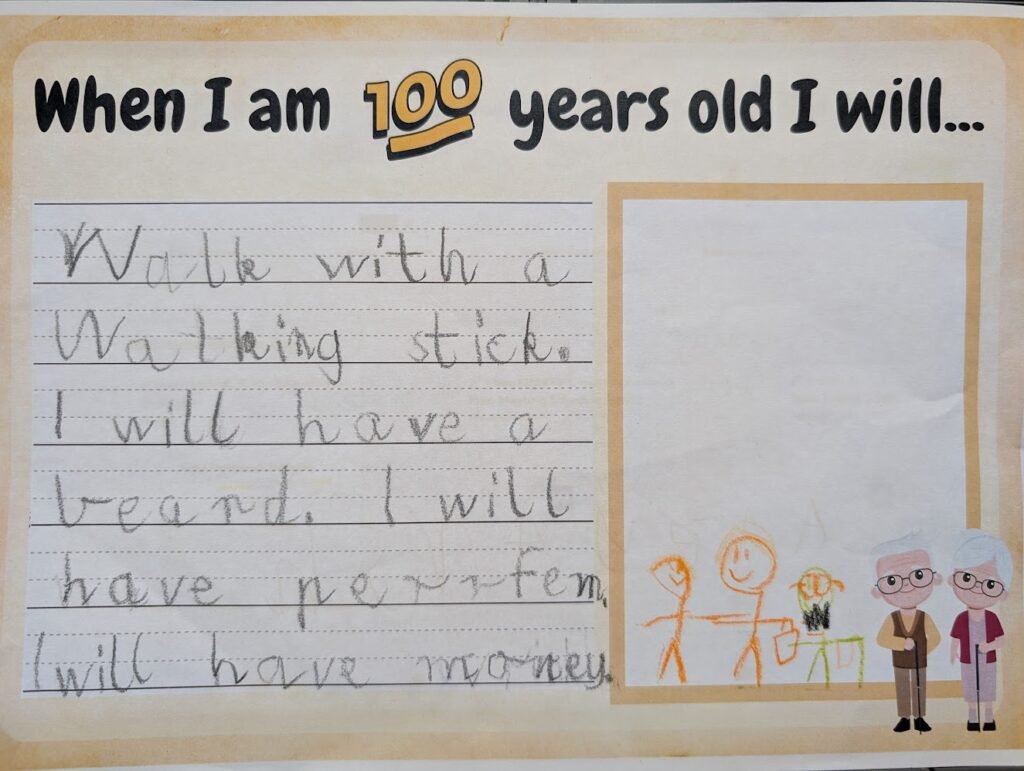 When I am 100 years old I will...
Walk with a
Walking stick.
I will have a
beard. I will
have perrfem.
I will have money.